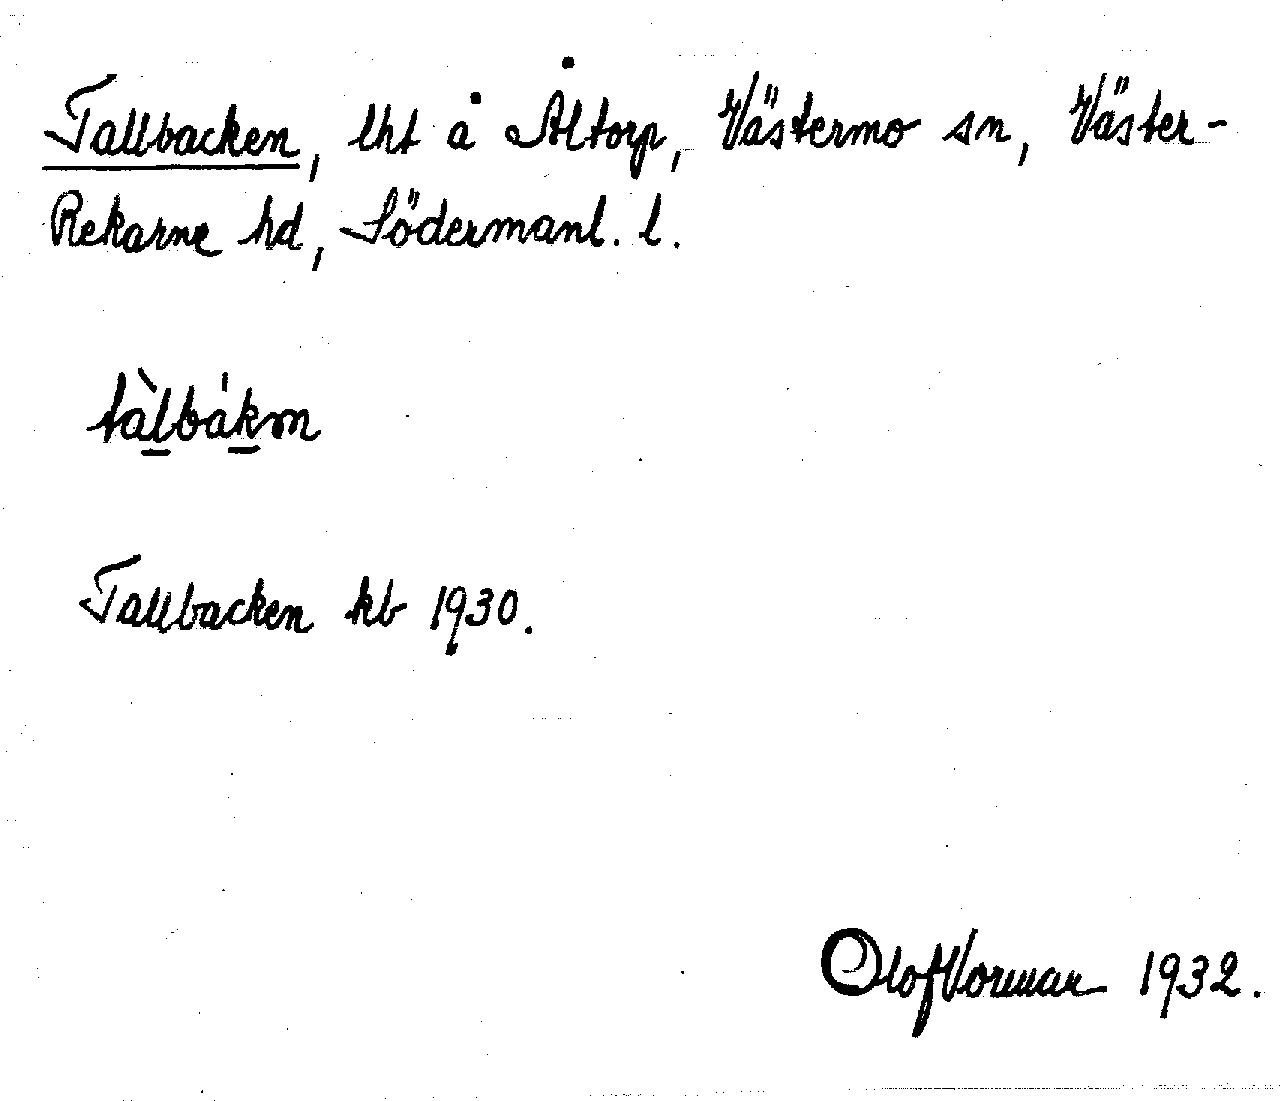 Tallbacken, lht å Åltorp, Västermo sn, Väster-
Rekarne hd, Södermanl. l.
tàlbákm
Tallbacken kb 1930.
Olof Vorman 1932.